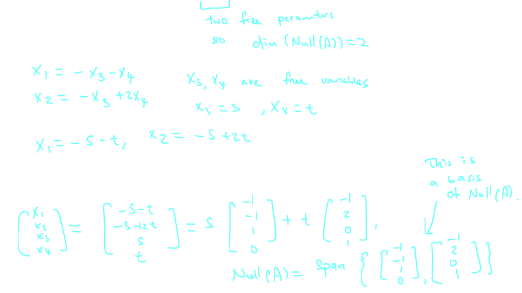 two free parameters
so dim(Null(A))=2
x₁ = -x₃-x₄
x₂ = -x₃+2x₄
x₃, x₄ are free variables
x₃ = s , x₄ = t
x₁ = -s-t, x₂ = -s+2t
This is
a basis
of Null(A)
[x₁ x₂ x₃ x₄] = [-s-t -s+2t s t] = s [-1 -1 1 0] + t [-1 2 0 1],
Null(A) = span { [-1 -1 1 0], [-1 2 0 1] }